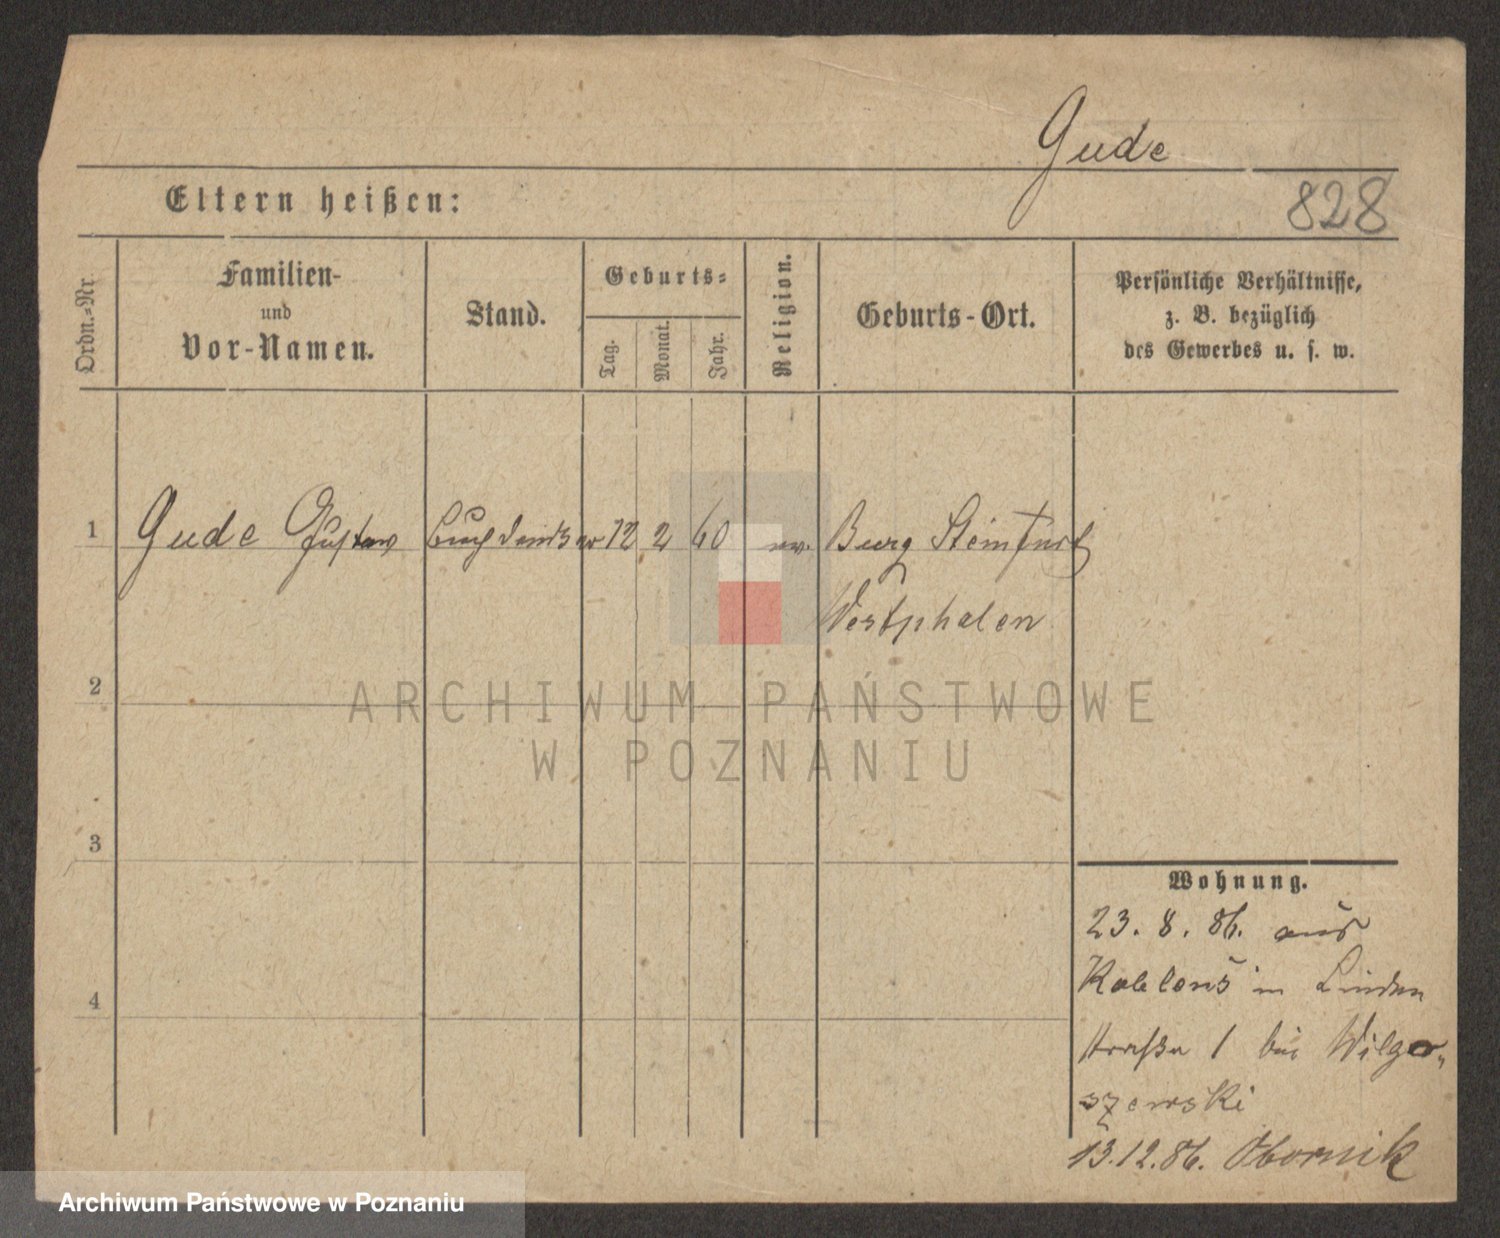 Gude
Eltern heißen:
828
Ordn.-Nr
Familien-
und
Vor-Namen.
Stand.
Geburts-
Tag.
Monat.
Jahr.
Religion.
Geburts-Ort.
Persönliche Verhältnisse,
z. B. bezüglich
des Gewerbes u. s. w.
1 Gude Gustav 12 2 60 ev. Burg Steinfurt
Westphalen
2
ARCHIWUM PAŃSTWOWE
W POZNANIU
3
4
Wohnung.
23. 8. 86. aus
Koblenz in Linden
straße 1 bei Wilgo-
szewski
13.12.86. Obornik
Archiwum Państwowe w Poznaniu